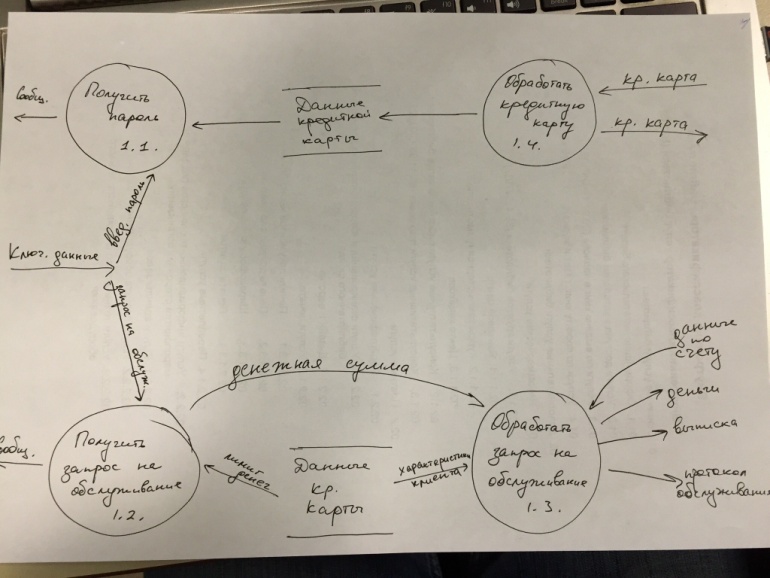 Сообщ.
Получить
пароль
1.1.
Данные
кредитной
карты
Обработать
кредитную
карту
1.4.
кр. карта
кр. карта
Ключ. данные
введ. пароль
запрос на обслуж.
денежная сумма
данные
по
счету
деньги
выписка
протокол
обслуживания
Сообщ.
Получить
запрос на
обслуживание
1.2.
лимит
денег
Данные
кр.
карты
характеристики
клиента
Обработать
запрос на
обслуживание
1.3.